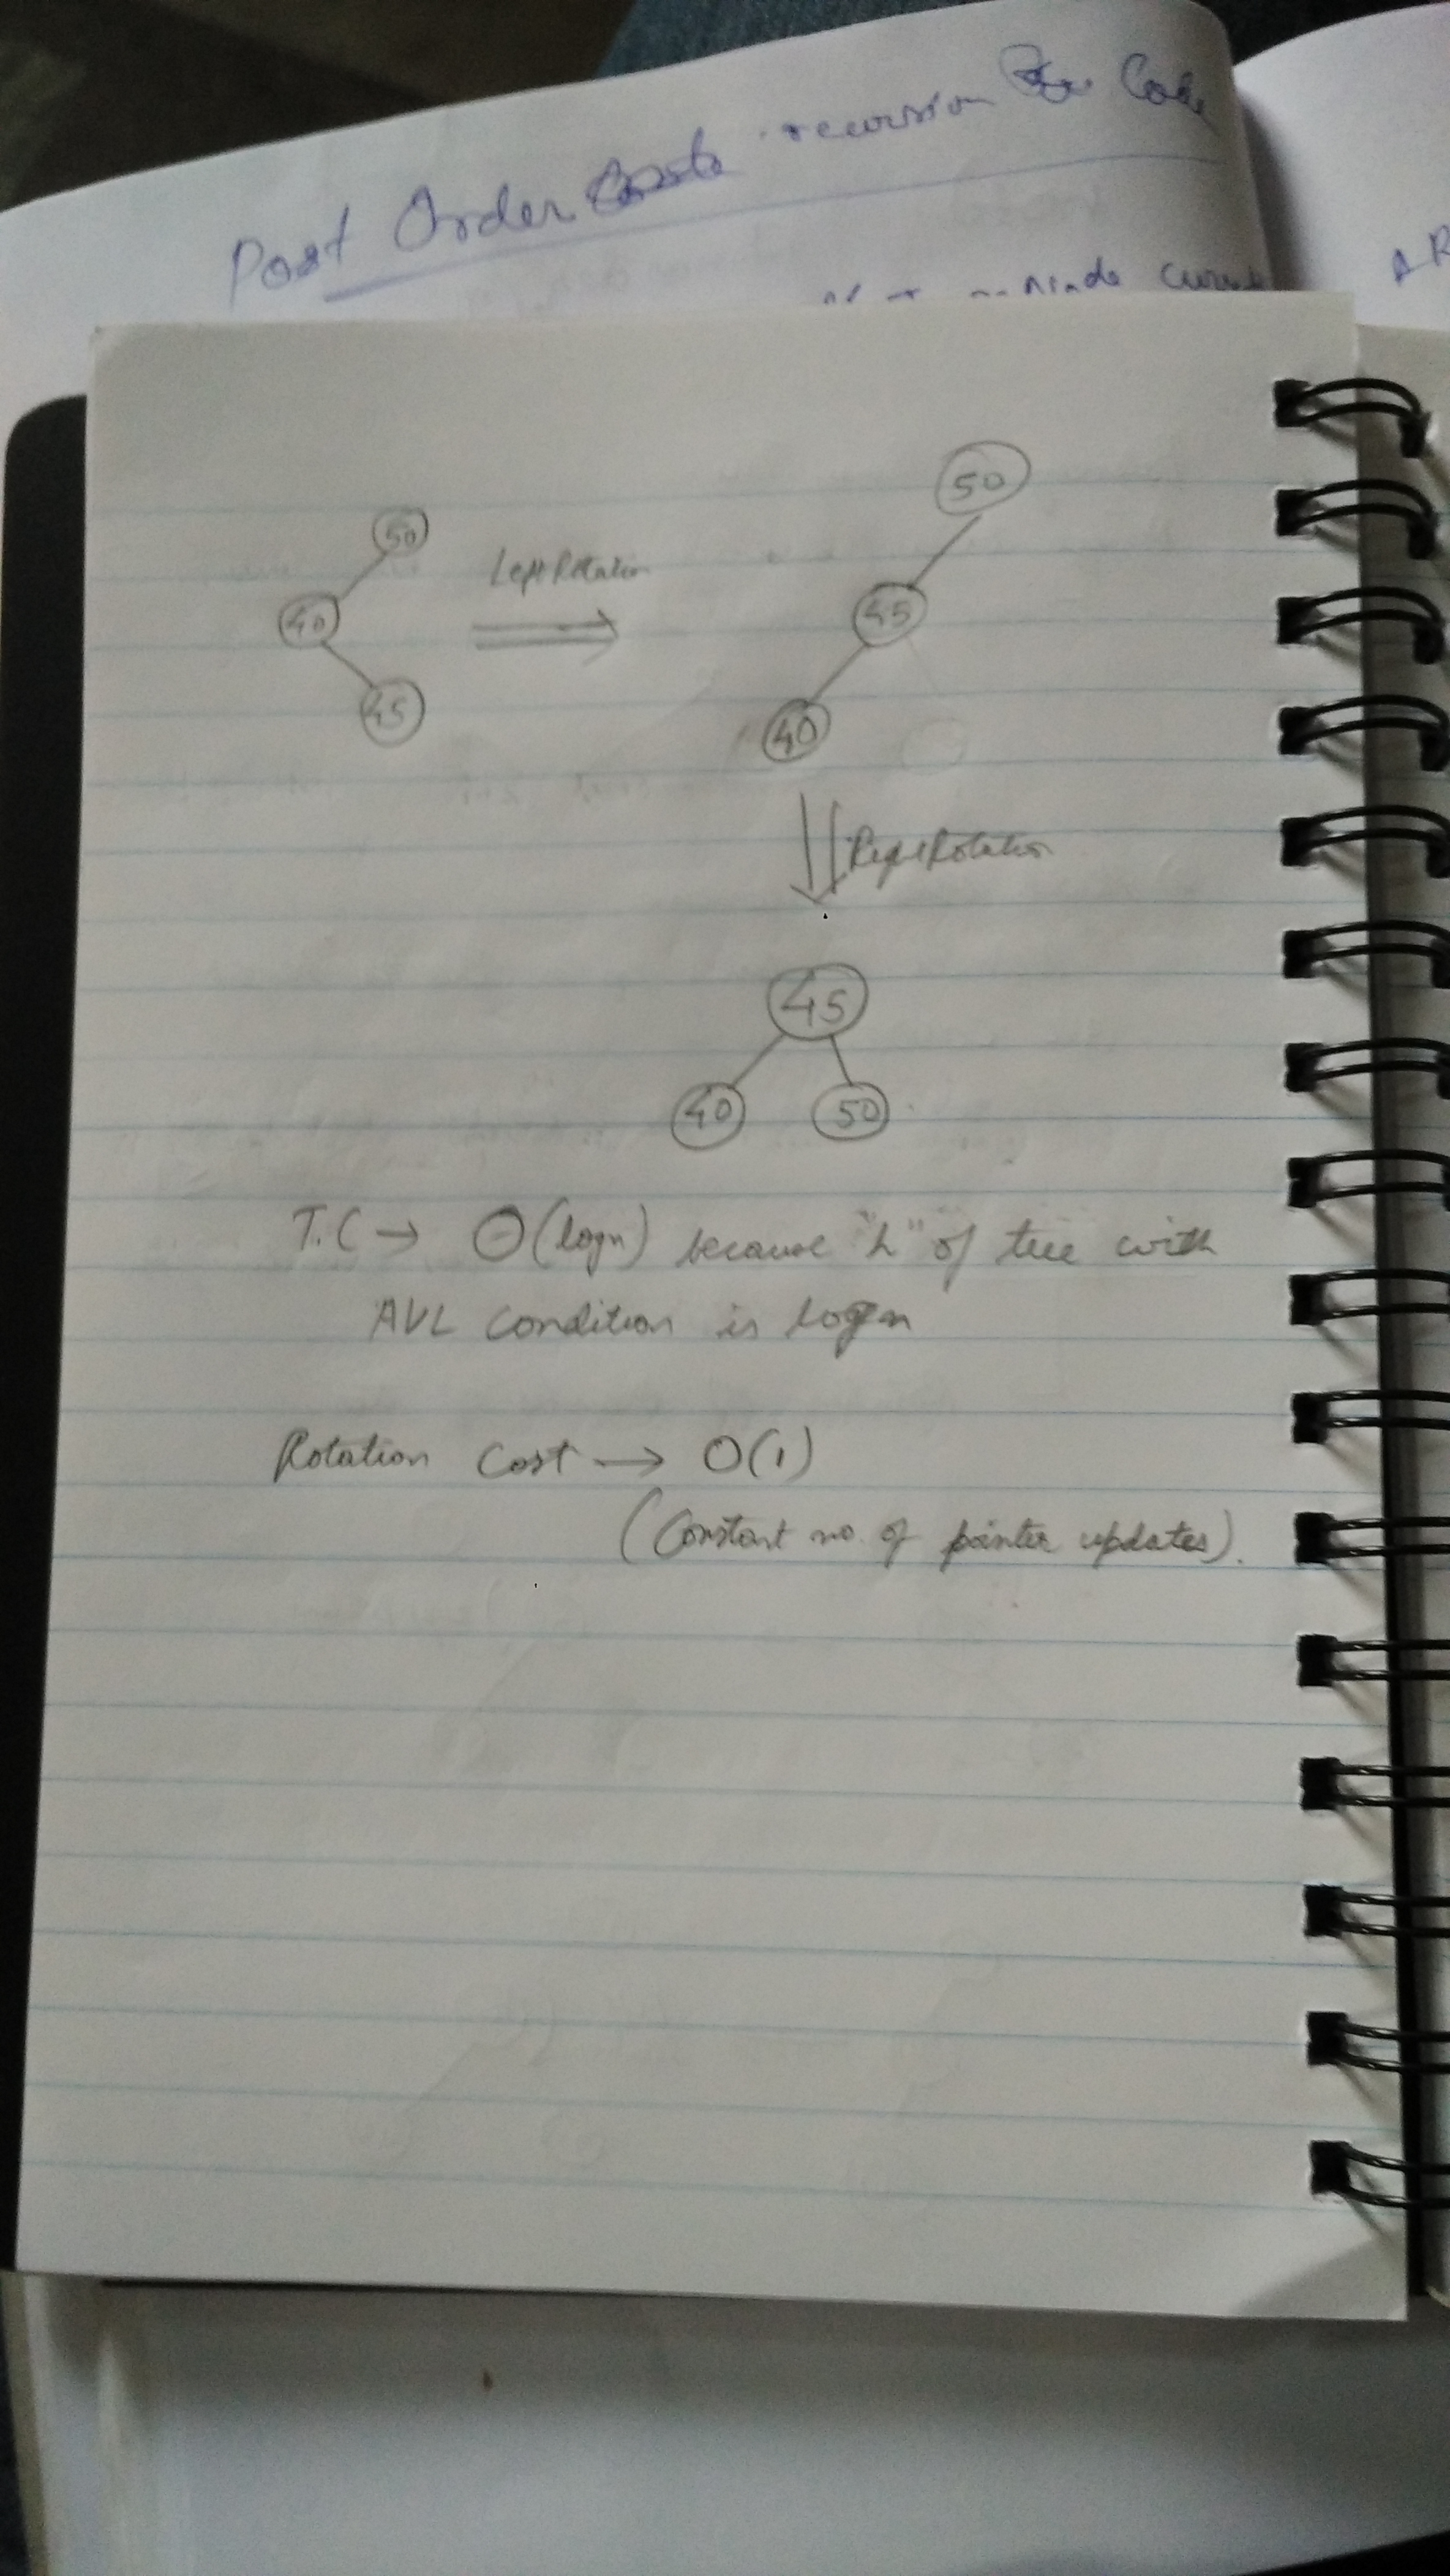 Post Order recursion Code
Node curr
AR
50
50
Left Rotation
40
45
45
40
Right Rotation
45
40 50
T.C → O(logn) because "h" of tree with
AVL condition is logn
Rotation cost → O(1)
(Constant no. of pointer updates).